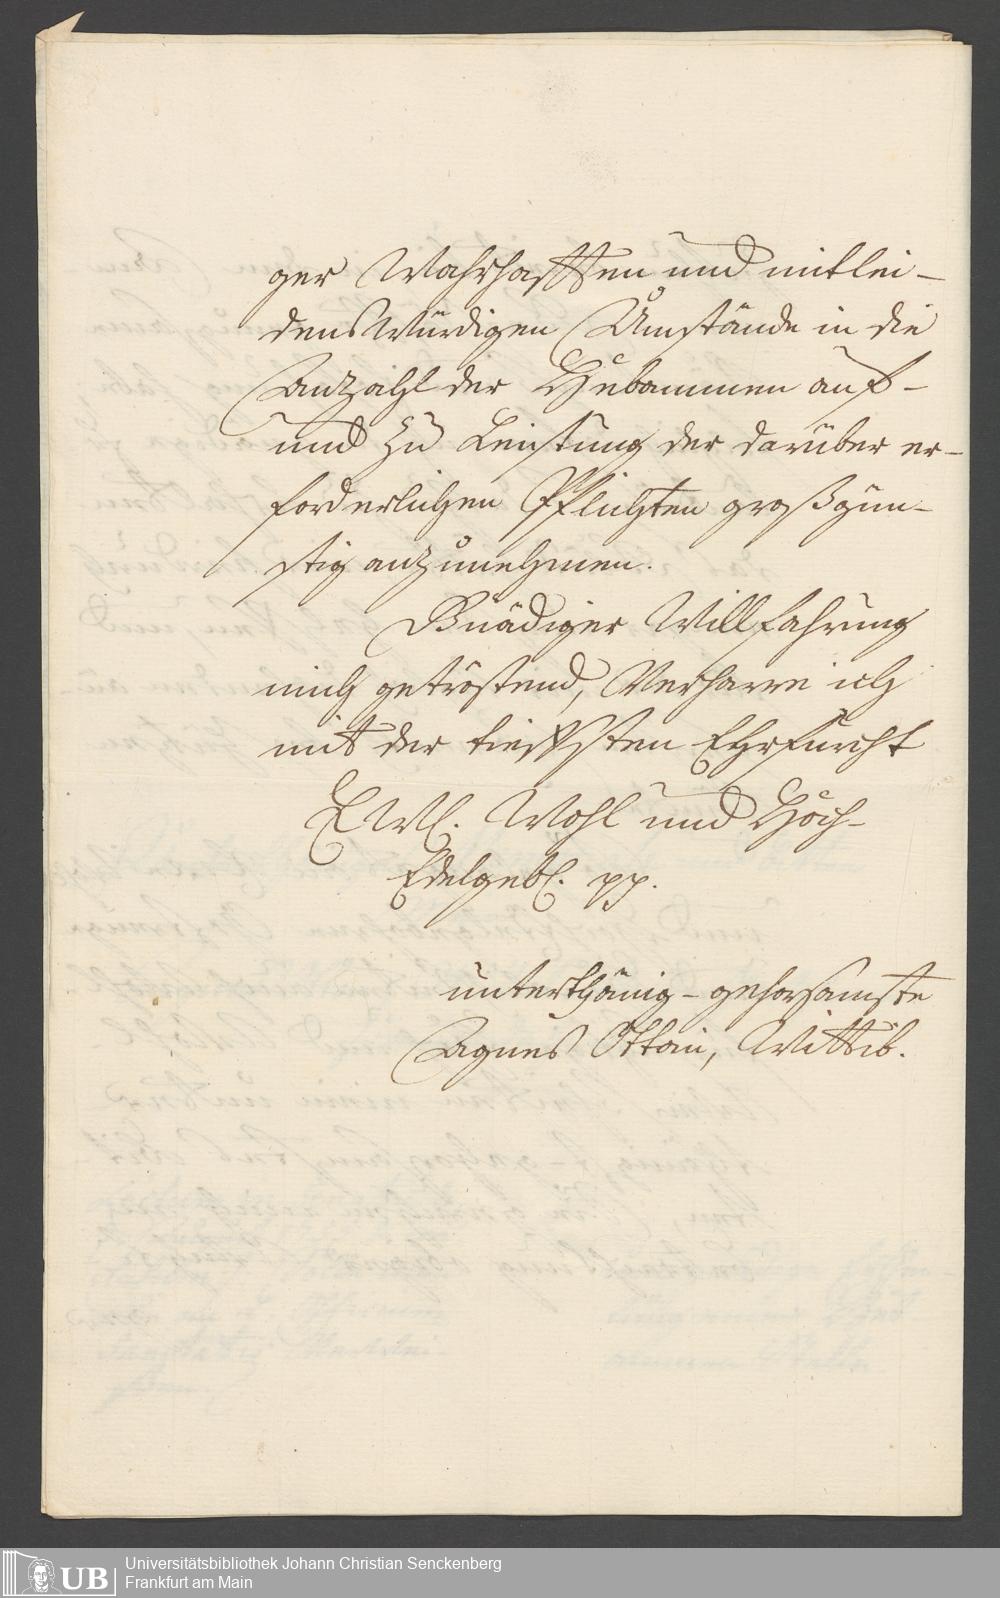 ger Wahrhafften und mitlei-
dens Würdigen Umstände in die
Anzahl der Hebammen auf-
und zu Leistung der darüber er-
forderlichen Pflichten großgün-
stig anzunehmen.
Gnädiger Willfahrung
mich getröstend, Verharre ich
mit der tieffsten Ehrfurcht
Ew. Wohl und Hoch-
Edelgebl. pp.
unterthänig-gehorsamste
Agnes Ottin, Wittib.
UB
Universitätsbibliothek Johann Christian Senckenberg
Frankfurt am Main